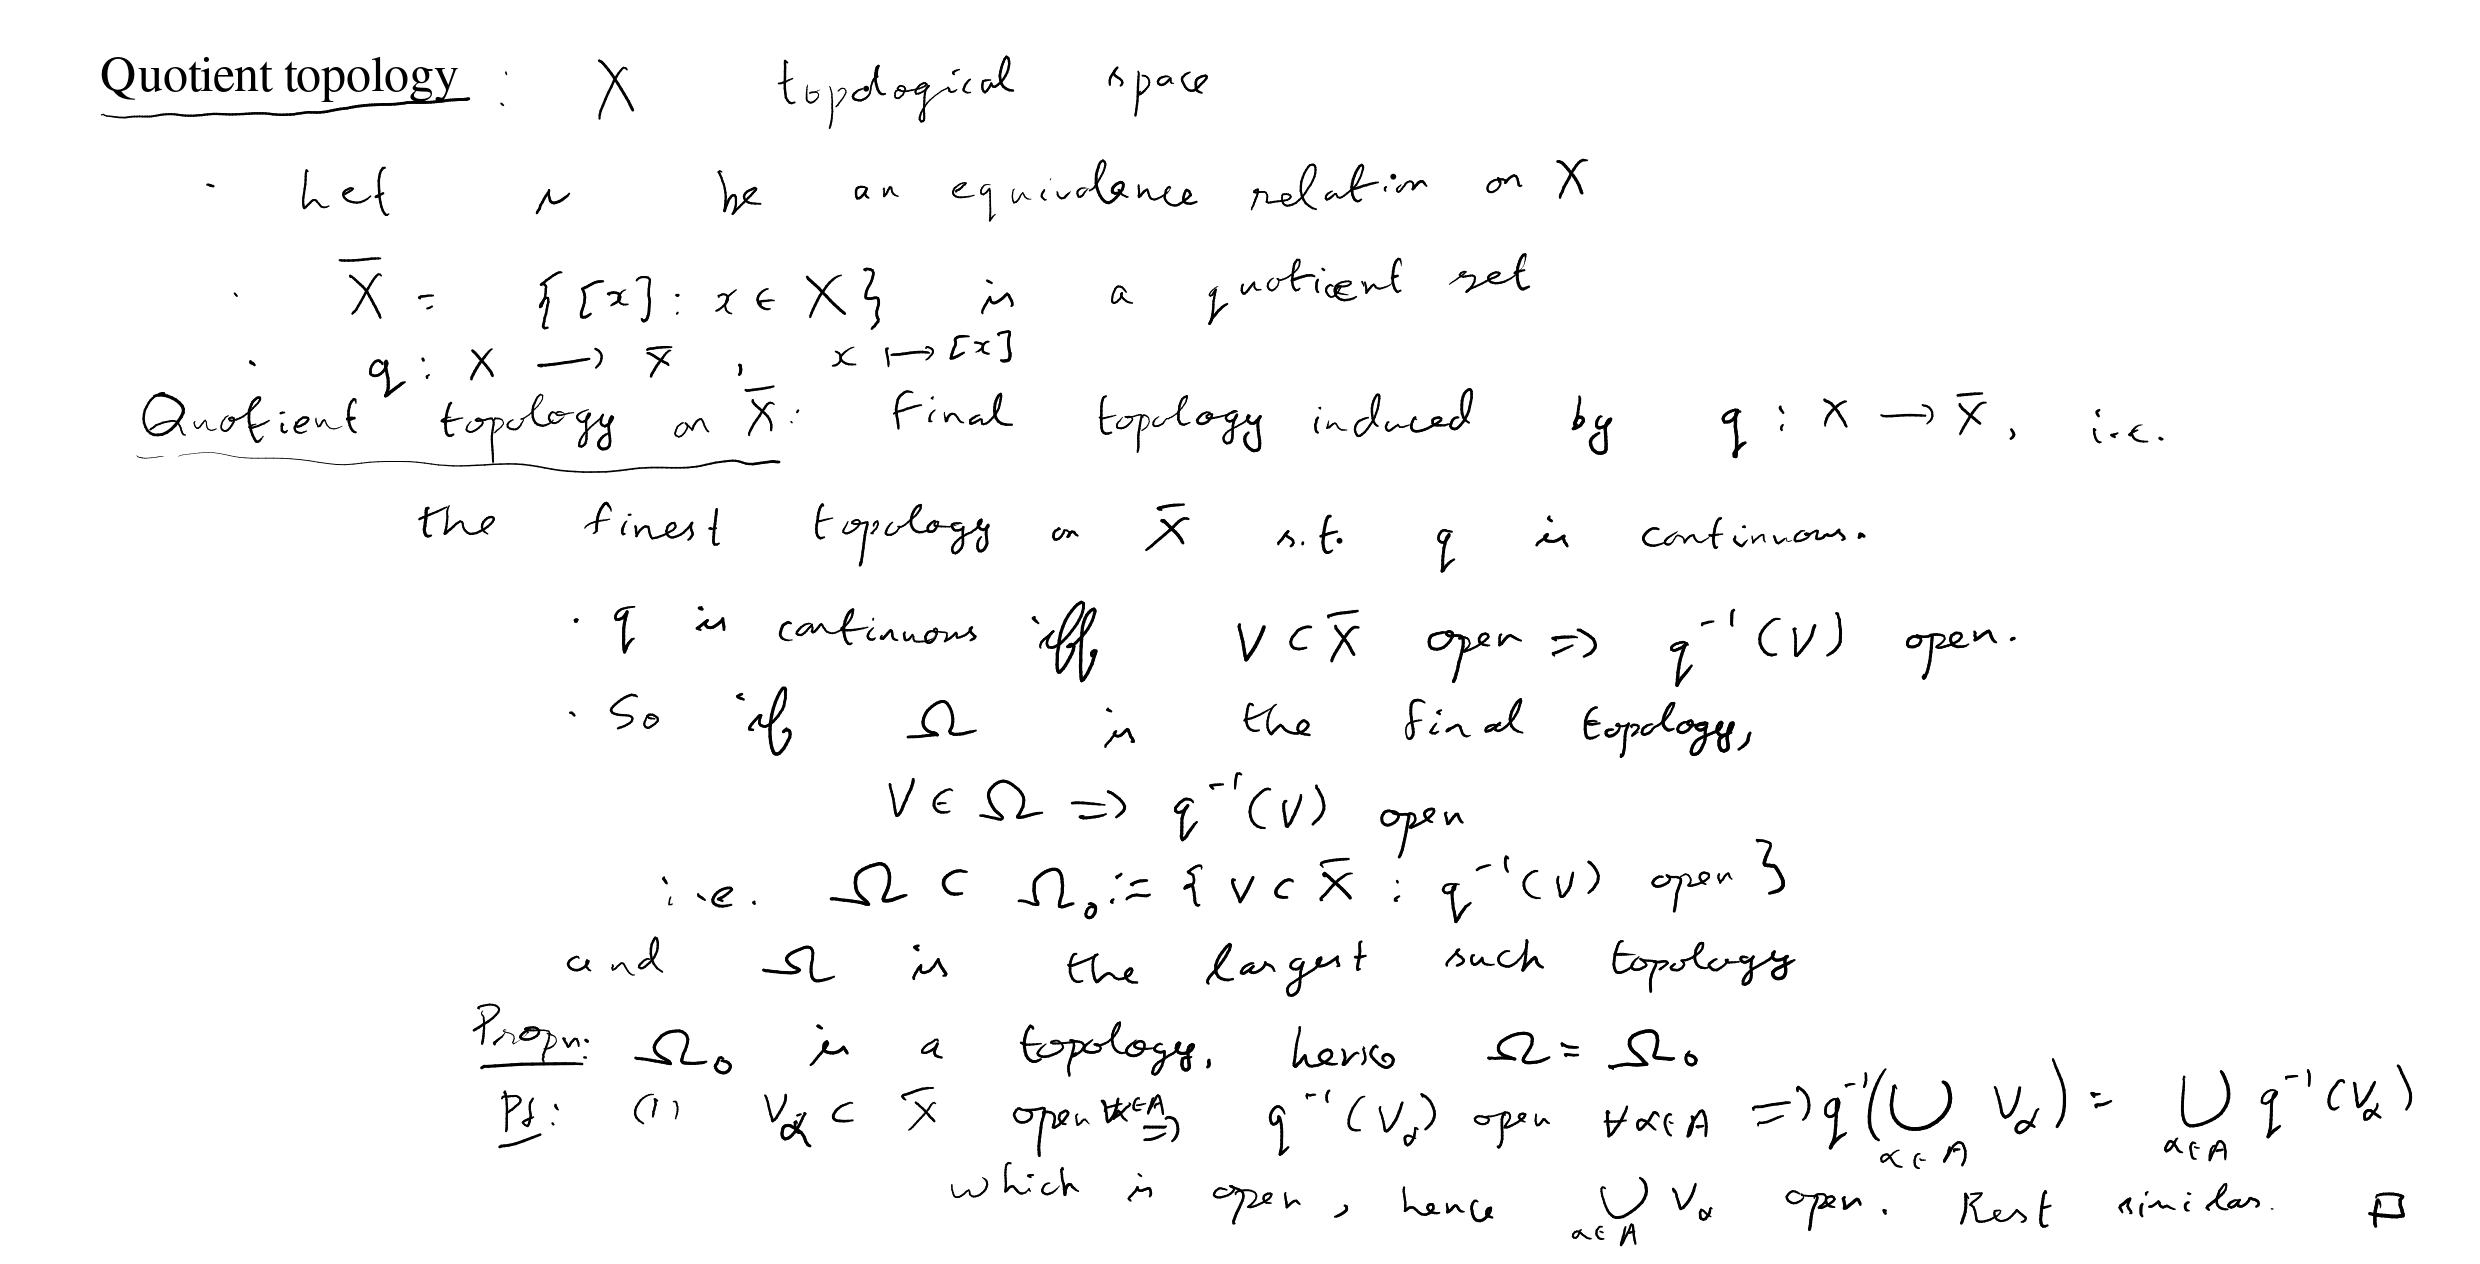 Quotient topology : X topological space
· Let ~ be an equivalence relation on X
· X̅ = { [x] : x ∈ X } is a quotient set
· q : X → X̅ , x ↦ [x]
Quotient topology on X̅ : Final topology induced by q : X → X̅, i.e.
the finest topology on X̅ s.t. q is continuous.
· q is continuous iff V ⊂ X̅ open => q⁻¹(V) open.
· So if Ω is the final topology,
V ∈ Ω => q⁻¹(V) open
i.e. Ω ⊂ Ω₀ := { V ⊂ X̅ : q⁻¹(V) open }
and Ω is the largest such topology
Propn: Ω₀ is a topology, hence Ω = Ω₀
Pf: (1) V_α ⊂ X̅ open ∀α∈A => q⁻¹(V_α) open ∀α∈A => q⁻¹(⋃_{α∈A} V_α) = ⋃_{α∈A} q⁻¹(V_α)
which is open, hence ⋃_{α∈A} V_α open. Rest similar. □